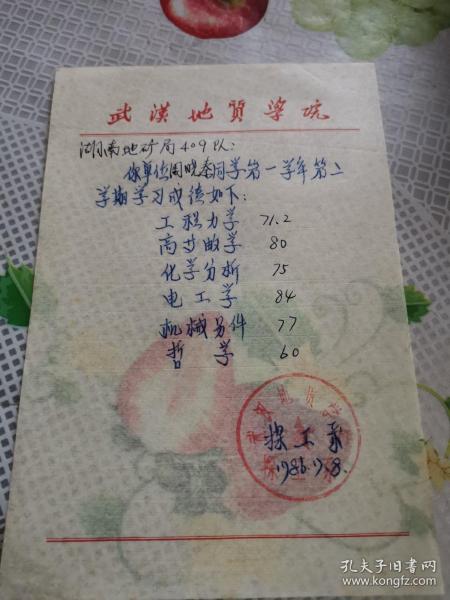 武汉地质学院
湖南地矿局409队：
你单位周晓春同学第一学年第二
学期学习成绩如下：
工程力学 71.2
高等数学 80
化学分析 75
电工学 84
机械另件 77
哲学 60
探工系
1986.7.8.
孔夫子旧书网
www.kongfz.com